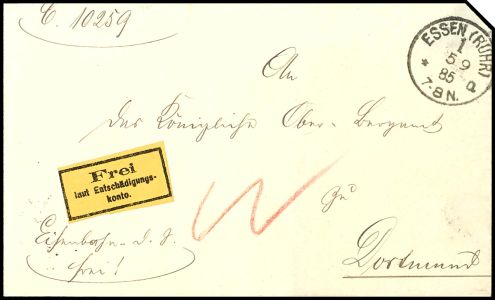 C. 10259
ESSEN (RUHR)
1
5 9
85
7-8 N.
An
das Königliche Ober-Bergamt
zu
Dortmund
Frei
laut Entschädigungs-
konto.
Eisenbahn-D. S.
frei!